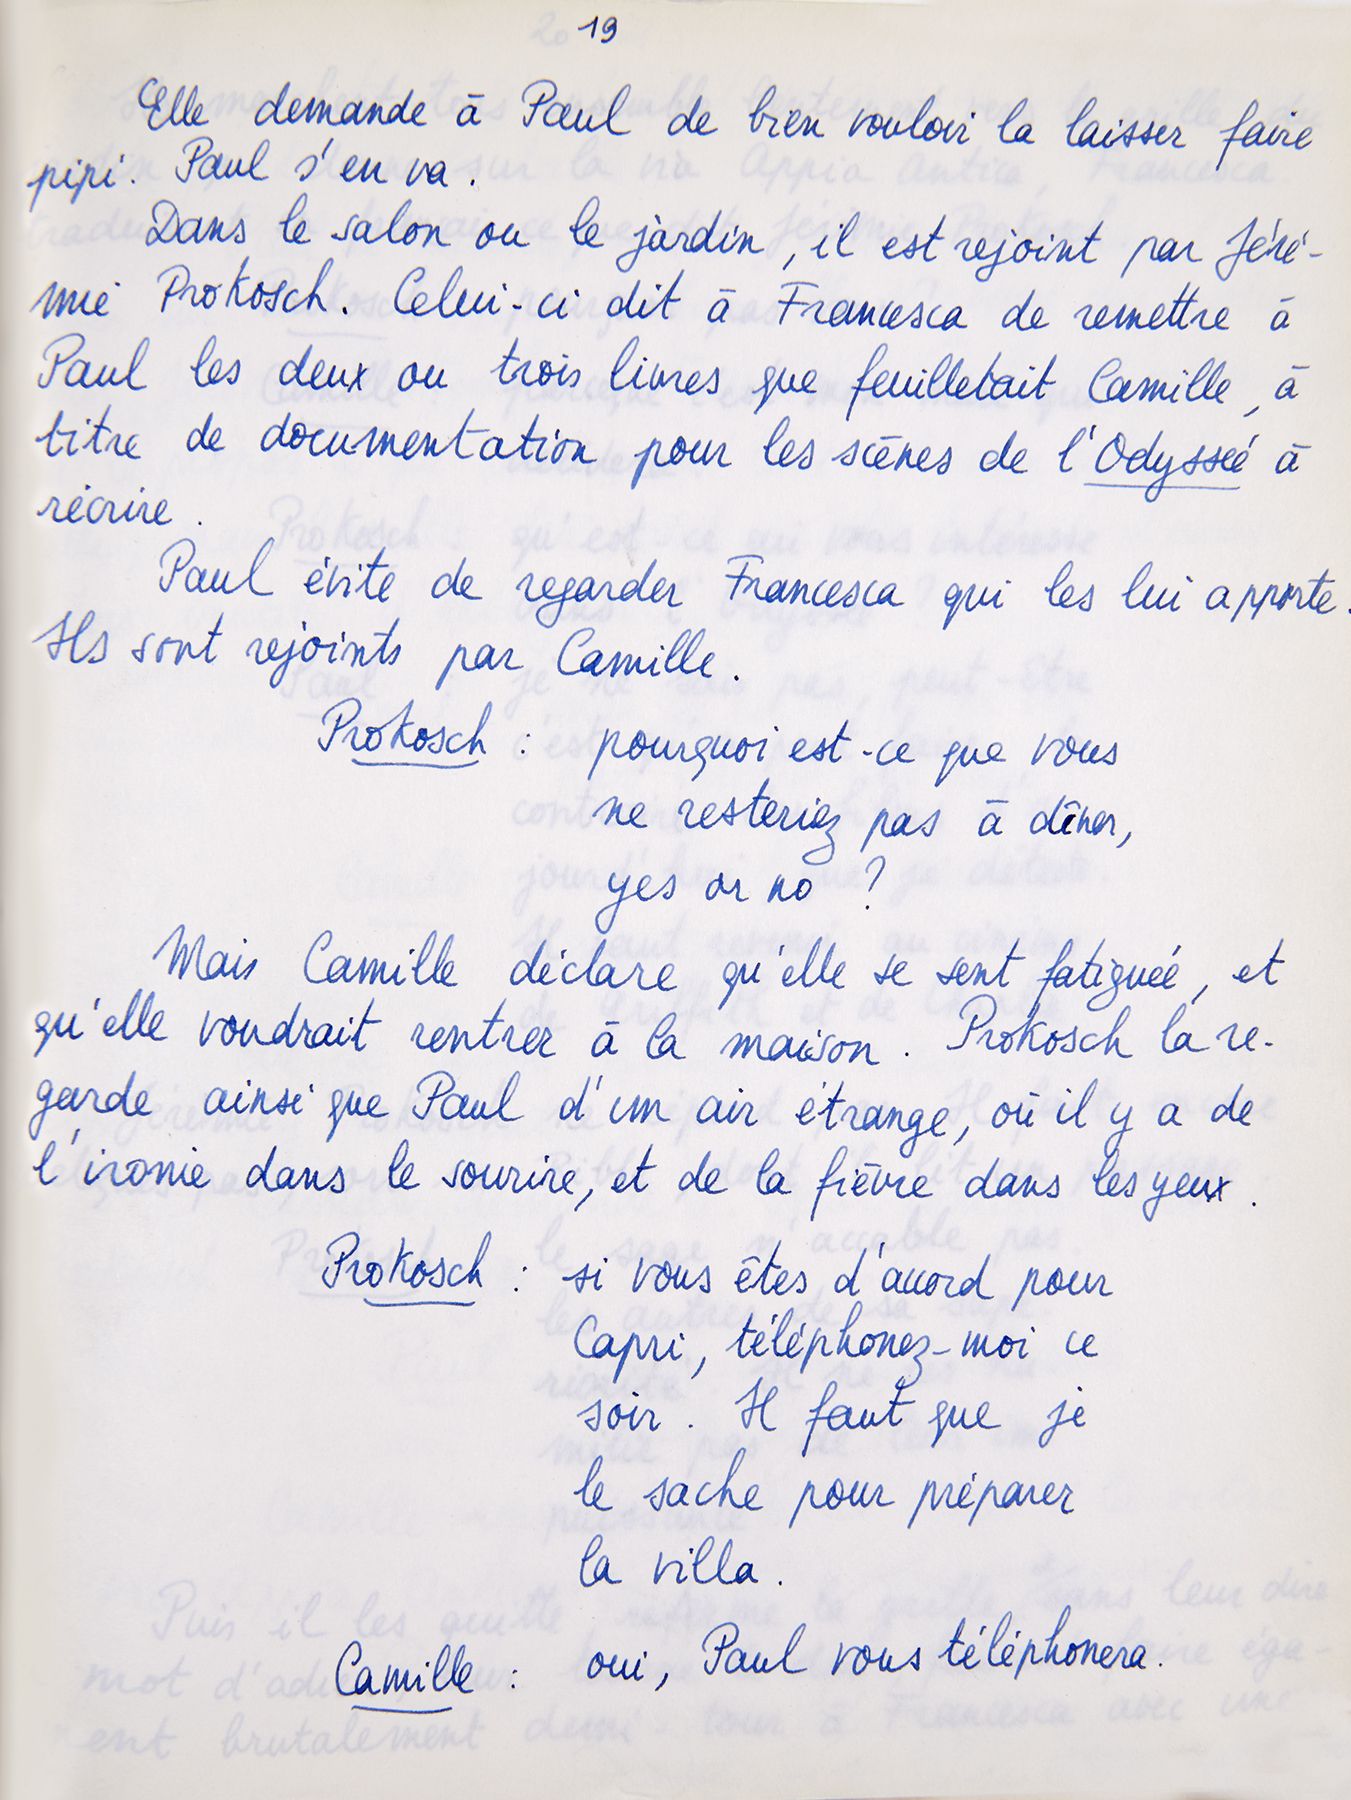 19
Elle demande à Paul de bien vouloir la laisser faire
pipi. Paul s'en va.
Dans le salon ou le jardin, il est rejoint par Jéré-
mie Prokosch. Celui-ci dit à Francesca de remettre à
Paul les deux ou trois livres que feuilletait Camille, à
titre de documentation pour les scènes de l'Odyssée à
réécrire.
Paul évite de regarder Francesca qui les lui apporte.
Ils sont rejoints par Camille.
Prokosch : pourquoi est-ce que vous
ne resteriez pas à dîner,
yes or no ?
Mais Camille déclare qu'elle se sent fatiguée, et
qu'elle voudrait rentrer à la maison. Prokosch la re-
garde ainsi que Paul d'un air étrange, où il y a de
l'ironie dans le sourire, et de la fièvre dans les yeux.
Prokosch : si vous êtes d'accord pour
Capri, téléphonez-moi ce
soir. Il faut que je
le sache pour préparer
la villa.
Camille : oui, Paul vous téléphonera.